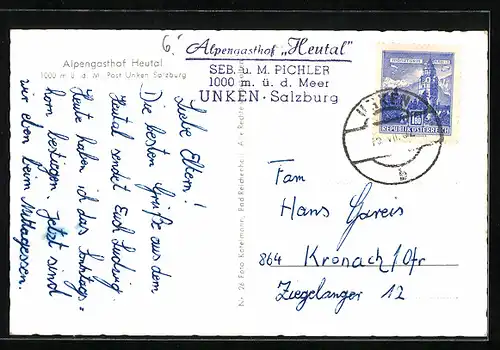 6.
Alpengasthof „Heutal"
SEB. u. M. PICHLER
1000 m. ü. d. Meer
UNKEN · Salzburg
Alpengasthof Heutal
1000 m ü. d. M. Post Unken Salzburg
Liebe Eltern!
Die besten Grüße aus dem
Heutal sendet Euch Ludwig.
Heute haben ich das Sonntags=
horn bestiegen. Jetzt sind
wir eben beim Mittagessen.
Foto Bad Reichenhall
REPUBLIK ÖSTERREICH
UNKEN
b
Fam
Hans Gareis
864 Kronach/Ofr
Ziegelanger 12